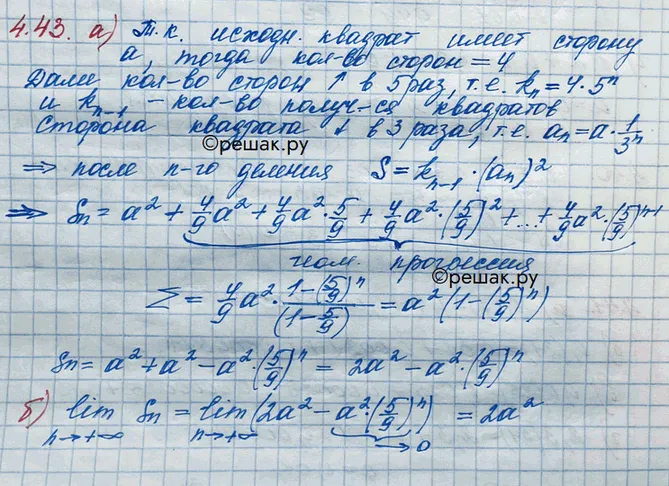 4.43. а) Т.к. исходн. квадрат имеет сторону
a, тогда кол-во сторон = 4
Далее кол-во сторон ↑ в 5 раз, т.е. kₙ = 4·5ⁿ
и kₙ₋₁ – кол-во получ-ся квадратов
Сторона квадрата ↓ в 3 раза, т.е. aₙ = a·1/3ⁿ
©решак.ру
⇒ после n-го деления S = kₙ₋₁·(aₙ)²
⇒ Sₙ = a² + 4/9 a² + 4/9 a²·5/9 + 4/9 a²·(5/9)² + ... + 4/9 a²·(5/9)ⁿ⁻¹
геом. прогрессия
©решак.ру
Σ = 4/9 a²·(1-(5/9)ⁿ)/(1-5/9) = a²(1-(5/9)ⁿ)
Sₙ = a² + a² - a²·(5/9)ⁿ = 2a² - a²·(5/9)ⁿ
б) lim Sₙ = lim (2a² - a²·(5/9)ⁿ) = 2a²
n→+∞ n→+∞ →0